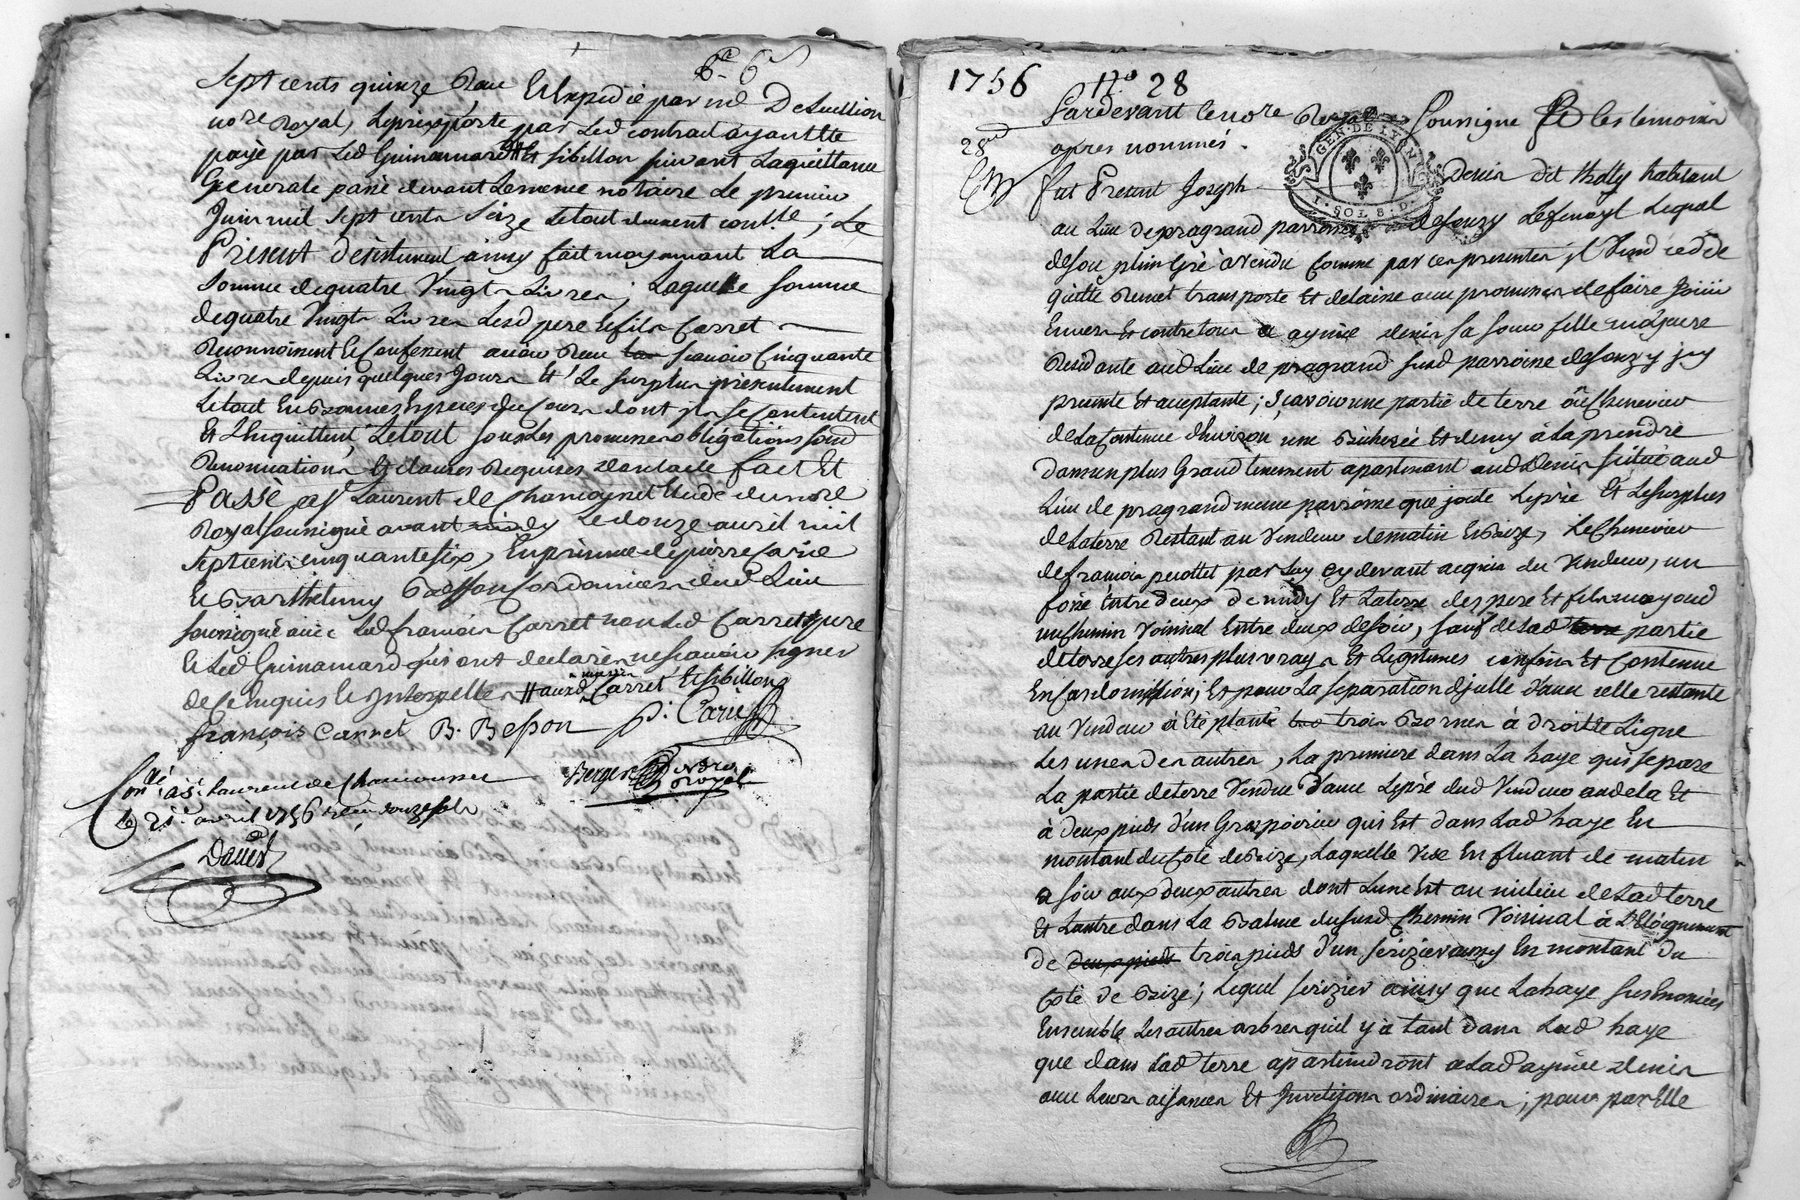 Sept cents quinze Recu Et Expedié par me Desuillion
no.re Royal, Le prix porté par Led contrat ayant Ete
payé par Led Guinamard Et Sibillon suivant La quittance
Generale passé devant Le meme notaire Le premier
Juin mil Sept cents Seize Le tout duement cont.lé ; Le
Present désistement ainsy fait moyennant La
Somme de quatre Vingts Livres ; Laquelle Somme
de quatre Vingts Livres Lesd pere Et fils Carret
Reconnoissent Et Confessent avoir Receu scavoir Cinquante
Livres depuis quelques Jours Et Le Surplus présentement
Le tout En Bonnes Especes du Cours dont ils Se Contentent
Et L'En quittent, Le tout Sous Les promesses obligations Soumd
Renonciations Et clauses Requises dont acte fait Et
Passé a St Laurent de Chamousset Etude du no.re
Royal Soussigné avant midy Le douze avril mil
Sept cents cinquante six, En présence de pierre Carié
Et Barthelemy Besson Cordonniers dud Lieu
Soussignés avec Led françois Carret non Led Carret pere
Et Led Guinamard qui ont declarés ne scavoir signer
de Ce Enquis Et Interpellés
françois Carret B. Besson P. Carié
Berger no.re Royal
Con.lé a St Laurent de Chamousset
Le 21.e avril 1756 Recu douze sols
1756 N.o 28
Pardevant le no.re Royal Soussigné Et Les temoins
28
apres nommés.
GEN. DE LYON
1. SOL 8 D.
fut Present Joseph Denis dit tholly habitant
au Lieu de pragrand parroisse de Souzy Lequel
de Son plein Gré a Vendu Comme par ces presentes il Vend cede
quitte Remet transporte Et delaisse avec promesses de faire Jouir
Envers Et contre tous a aymée denis Sa Soeur fille majeure
Residante aud Lieu de pragrand Susd parroisse de Souzy icy
presente Et acceptante ; Scavoir une partie de terre ou Chenevier
de La Contenue d'Environ une Bicherée Et demy à La prendre
dans un plus Grand tenement apartenant aud Denis Situé aud
Lieu de pragrand meme parroisse que joute Le pré Et Le Surplus
de La terre Restant au Vendeur de matin Et Bize, Le Chenevier
de francois perottet par Luy cy devant acquis du Vendeur, un
fossé Entre deux de midy Et La terre des pere Et fils
un Chemin Voisinal Entre deux de Soir, Sauf de Lad partie
de terre Ses autres plus vrays Et Legitimes confins Et Contenue
En Cas d'omission ; Et pour La Separation d'icelle d'avec celle restante
au Vendeur à Eté planté trois Bornes à droitte Ligne
Les unes des autres, La premiere dans La haye qui Separe
La partie de terre Vendue d'avec Le pré dud Vendeur au dela Et
à deux pieds d'un Gros poirier qui Est dans Lad haye En
montant du Coté de Bize, Laquelle Vise En fluant de matin
a Soir aux deux autres dont L'une Est au milieu de Lad terre
Et L'autre dans La Balme du Susd Chemin Voisinal à L'Eloignement
de trois pieds d'un Serizier aussy En montant du
Coté de Bize ; Lequel Serizier ainsy que La haye Sus Enoncées
Ensemble Les autres arbres qu'il y à tant dans Lad haye
que dans Lad terre apartiendront a Lad aymée denis
avec Leurs aisances Et ordinaires ; pour par Elle